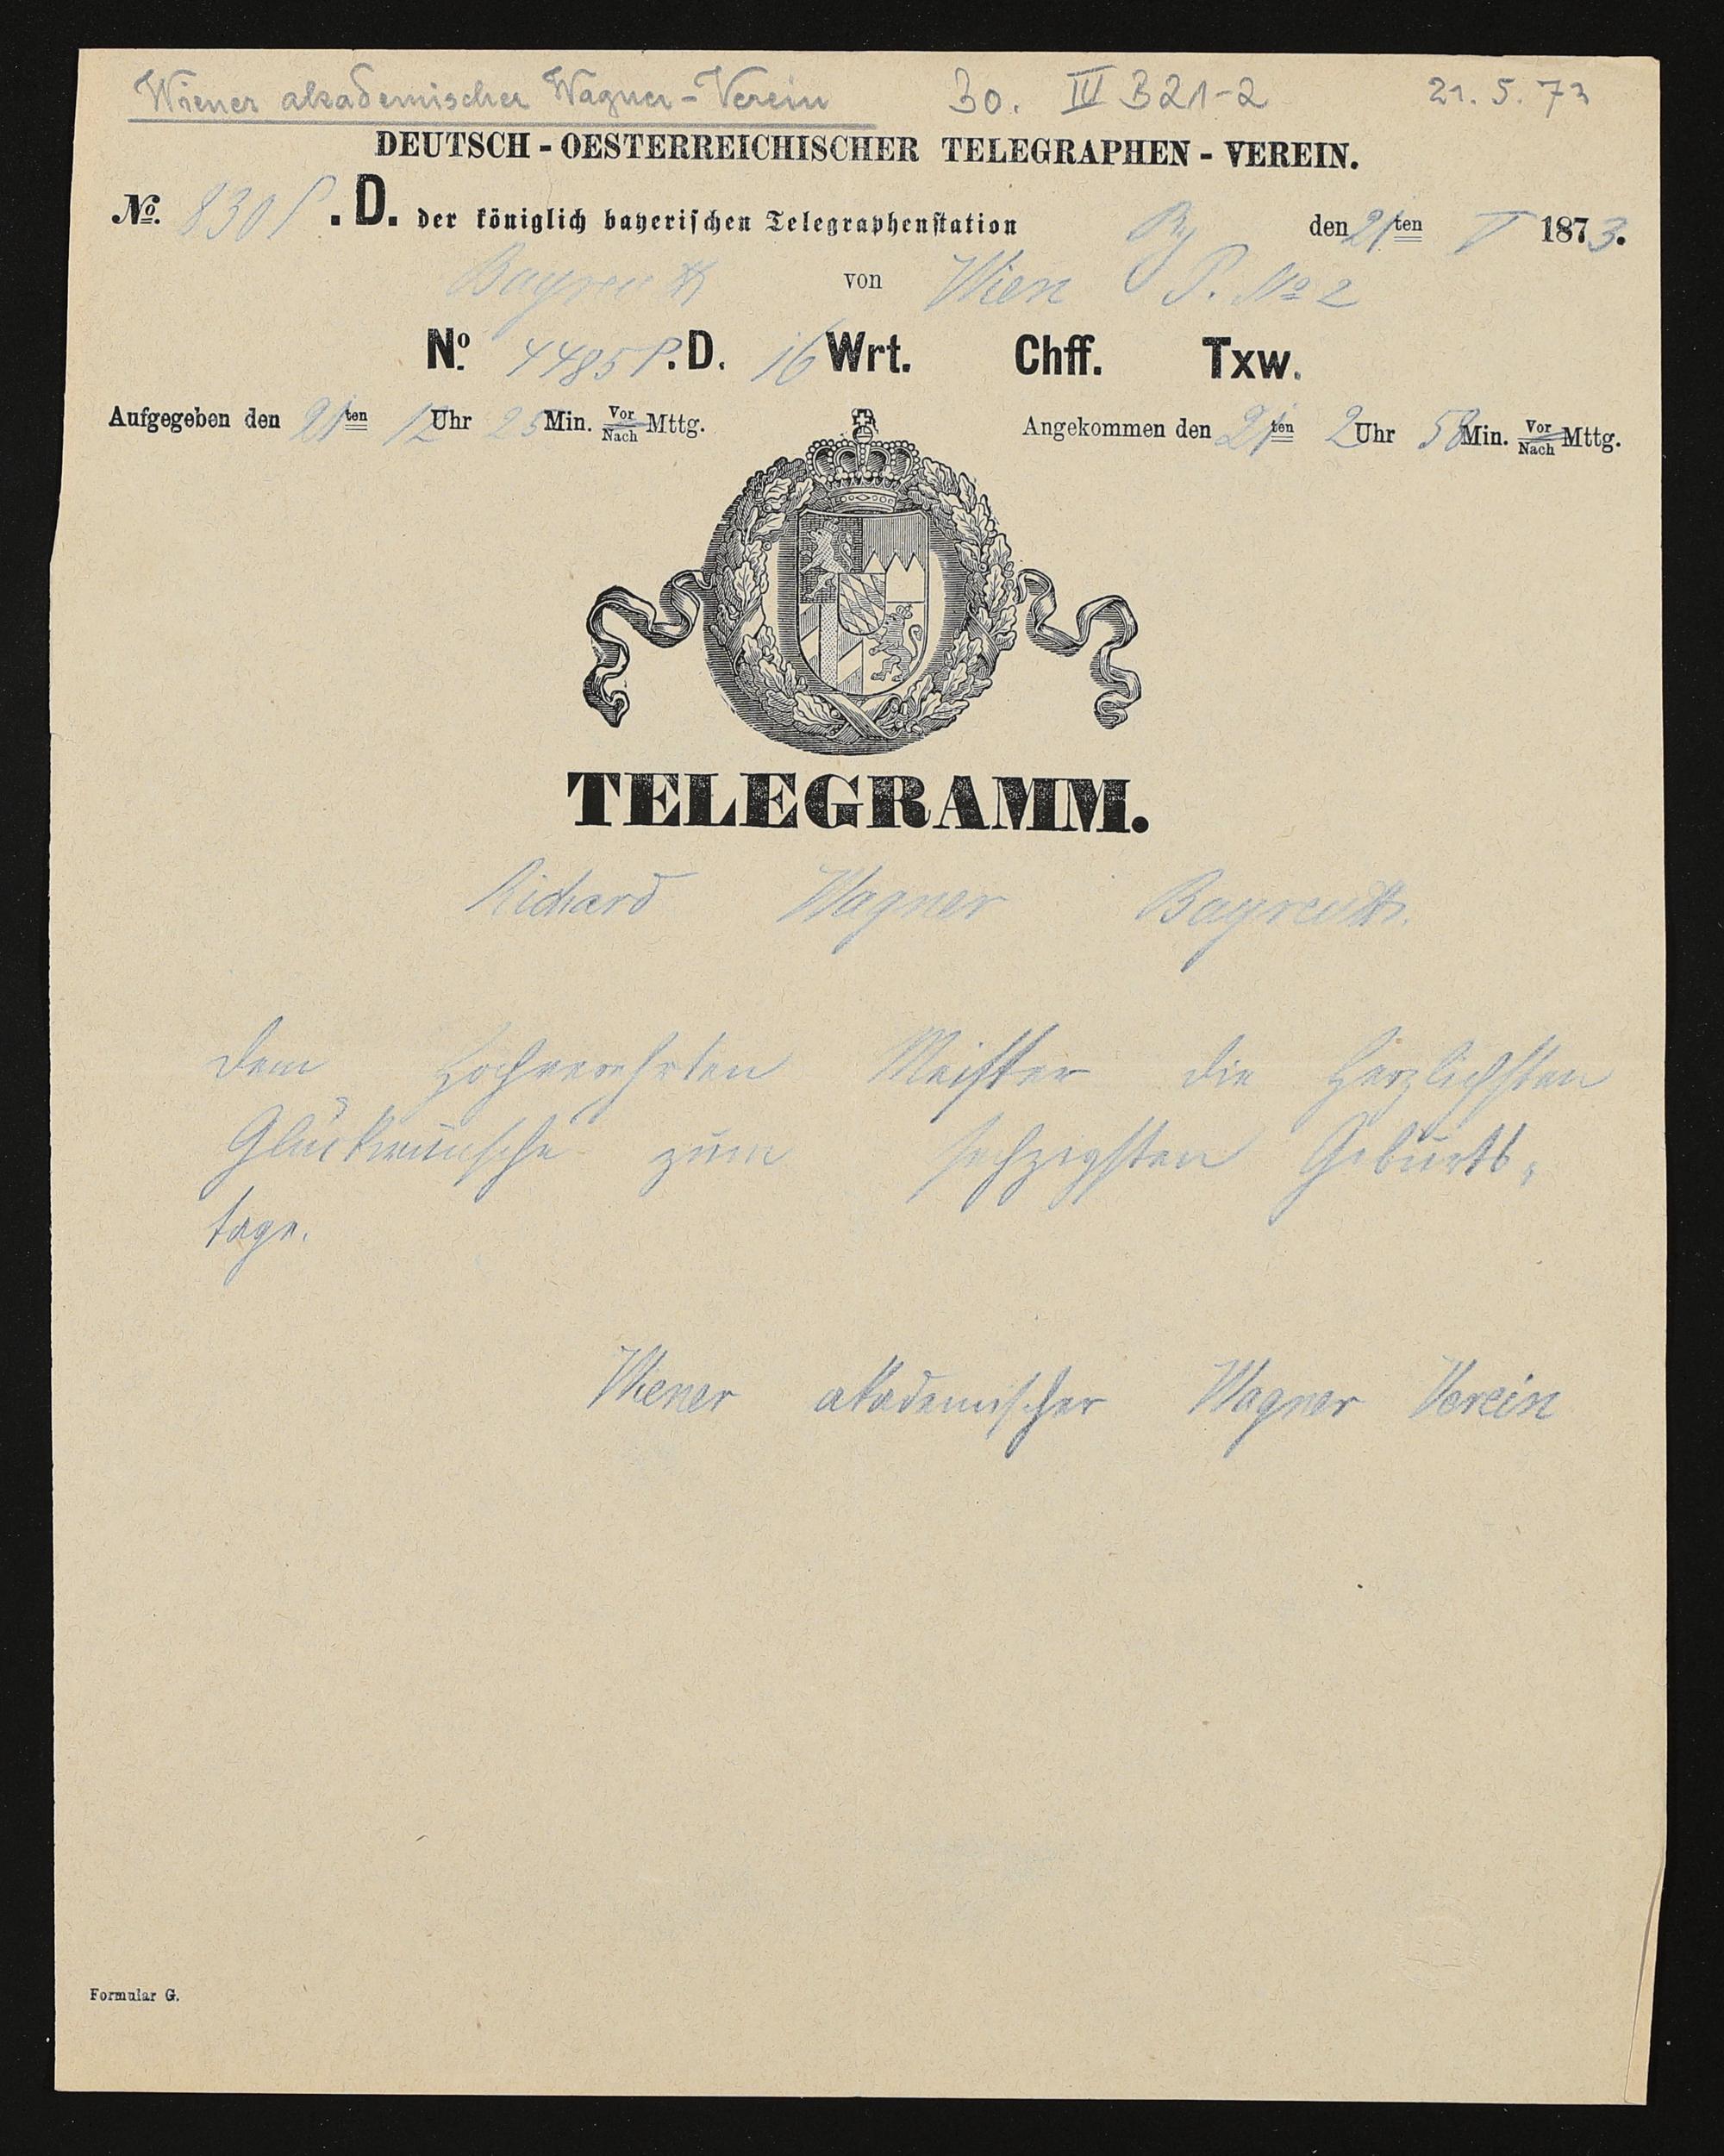 Wiener akademischer Wagner-Verein 30. III B21-2 21. 5. 73
DEUTSCH - OESTERREICHISCHER TELEGRAPHEN - VEREIN.
No. 830 P. D. der königlich bayerischen Telegraphenstation By den 21ten V 1873.
Bayreuth von Wien P. No 2
No. 4485 P. D. 16 Wrt. Chff. Txw.
Aufgegeben den 21ten 12 Uhr 25 Min. Vor Nach Mttg. Angekommen den 21ten 2 Uhr 58 Min. Vor Nach Mttg.
TELEGRAMM.
Richard Wagner Bayreuth.
Dem hochverehrten Meister die herzlichsten
Glückwünsche zum sechzigsten Geburts-
tage.
Wiener akademischer Wagner Verein
Formular G.